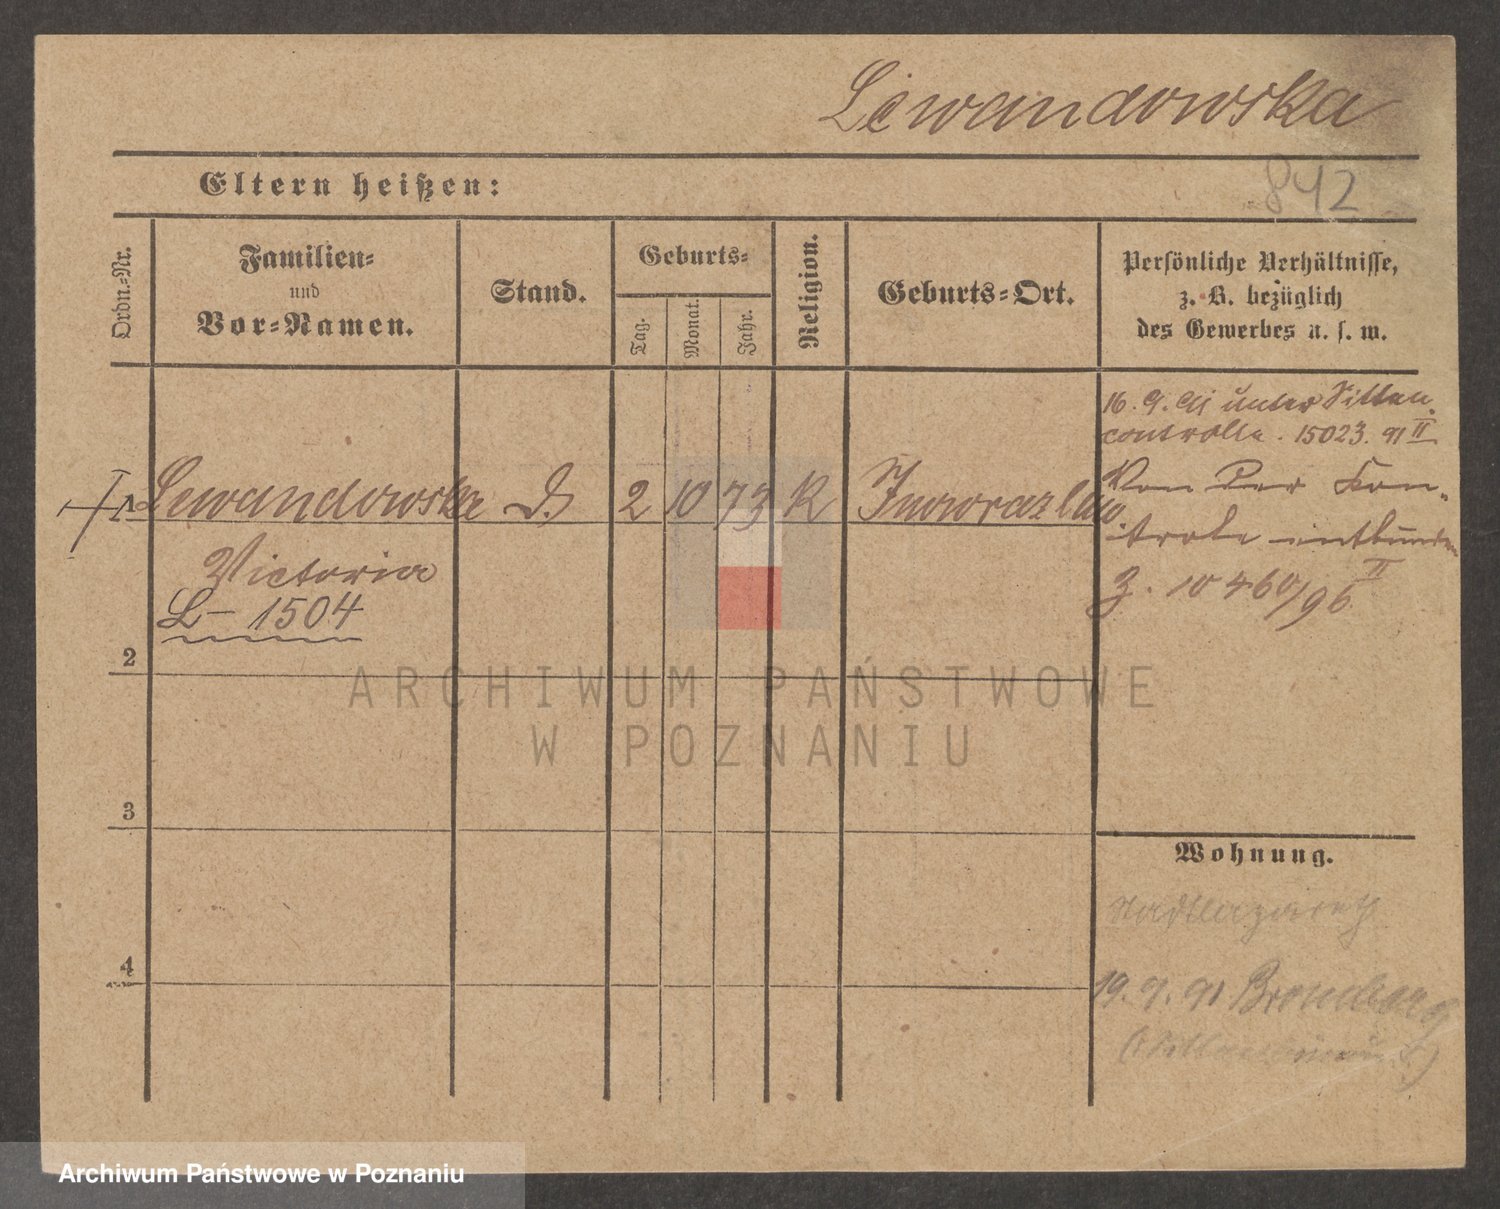 Lewandowska
Eltern heißen:
842
Ordn.-Nr.
Familien-
und
Vor-Namen.
Stand.
Geburts-
Tag.
Monat.
Jahr.
Religion.
Geburts-Ort.
Persönliche Verhältnisse,
z. B. bezüglich
des Gewerbes u. s. w.
16. 9. 91 unter Sitten
controlle. 15023. 91 II
1 Lewandowska D. 2 10 73 K Inowrazlaw.
Victoria
L- 1504
Von der Kon-
trole entbunden
Z. 10460/96 II
2
3
4
Wohnung.
Stadtlazareth
19. 9. 91 Bromberg
ARCHIWUM PAŃSTWOWE
W POZNANIU
Archiwum Państwowe w Poznaniu